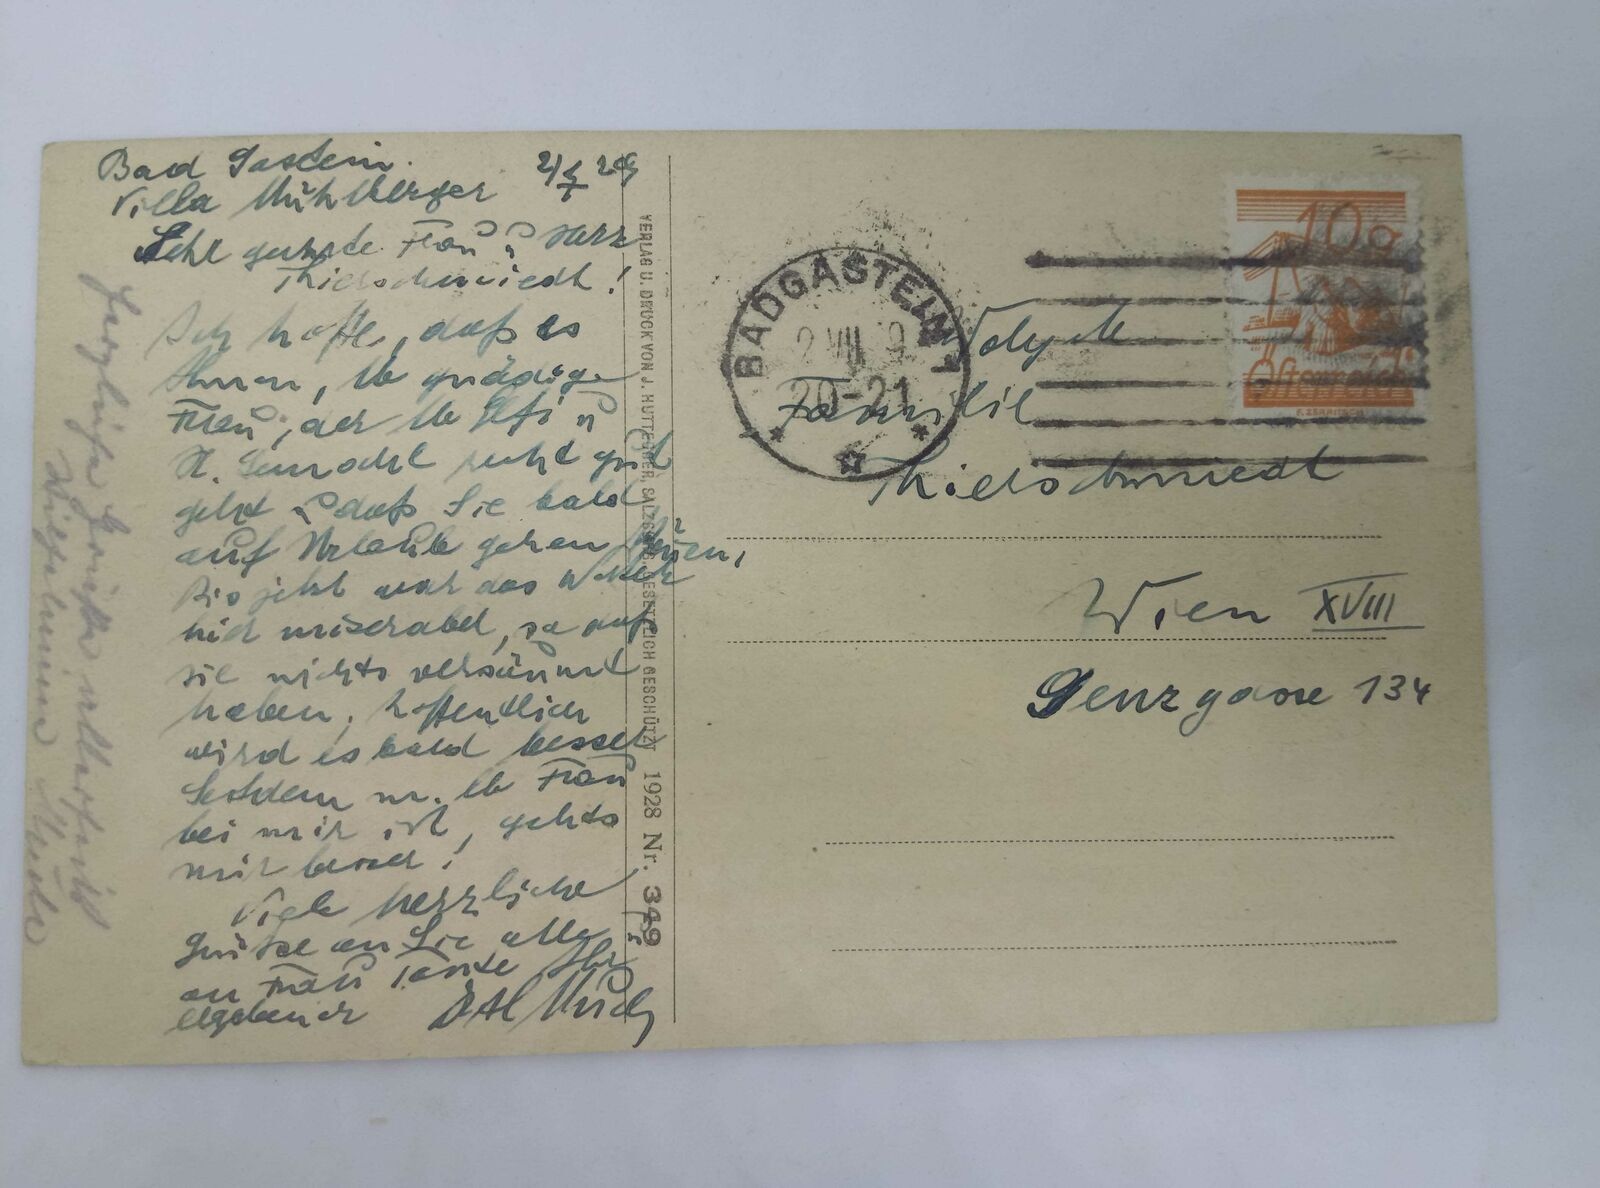 Bad Gastein. 2/7 29
Villa Mühlberger
Sehr geehrte Frau u Herr
Thielschmiedt!
Ich hoffe, daß es
Ihnen, lb gnädige
Frau, der lb Elfi u
H. recht gut
geht u daß Sie bald
auf Urlaub gehen können,
Bis jetzt war das Wetter
hier miserabel, so daß
sie nichts versäumt
haben, hoffentlich
wird es bald besser
Seitdem m. lb Frau
bei mir ist, gehts
mir besser!
Viele herzliche
Grüsse an Sie alle
an Frau Tante Ihr
ergebener
Herzlichste Grüße
VERLAG U. DRUCK VON J. HUTTEGGER, SALZBURG. GESETZLICH GESCHÜTZT 1928 Nr. 349
BADGASTEIN 1
2 VII 9
20-21
10g
Österreich
F. ZERRITSCH
Familie
Thielschmiedt
Wien XVIII
Genzgasse 134